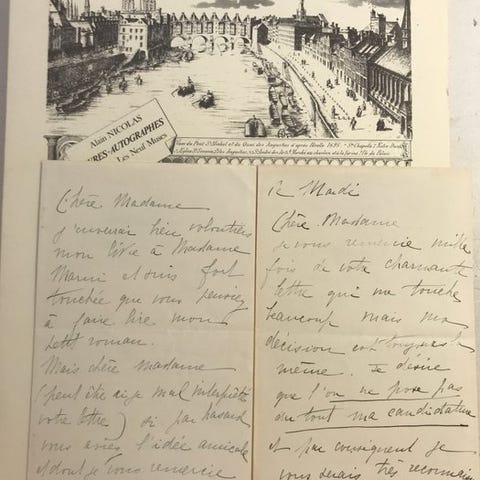 Vues du Pont St Michel et du Quai des Augustins d'après
Alain NICOLAS
-AUTOGRAPHES
Les Neuf Muses
Chère Madame
J'enverrai bien volontiers
mon livre à Madame
et suis fort
touchée que vous pensiez
à faire lire mon
petit roman.
Mais chère Madame
(peut être ai-je mal interprété
votre lettre) si par hasard
vous aviez l'idée amicale
et dont je vous remercie
12 Mardi
Chère Madame
je vous remercie mille
fois de votre charmante
lettre qui me touche
beaucoup mais ma
décision est toujours la
même. Je désire
que l'on ne pose pas
du tout ma candidature
et par conséquent je
vous serais très reconnais